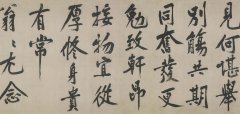 見何堪舉
別觴共期
同奮發更
勉致軒昂
接物宜從
厚脩身貴
有常
翁〻无念